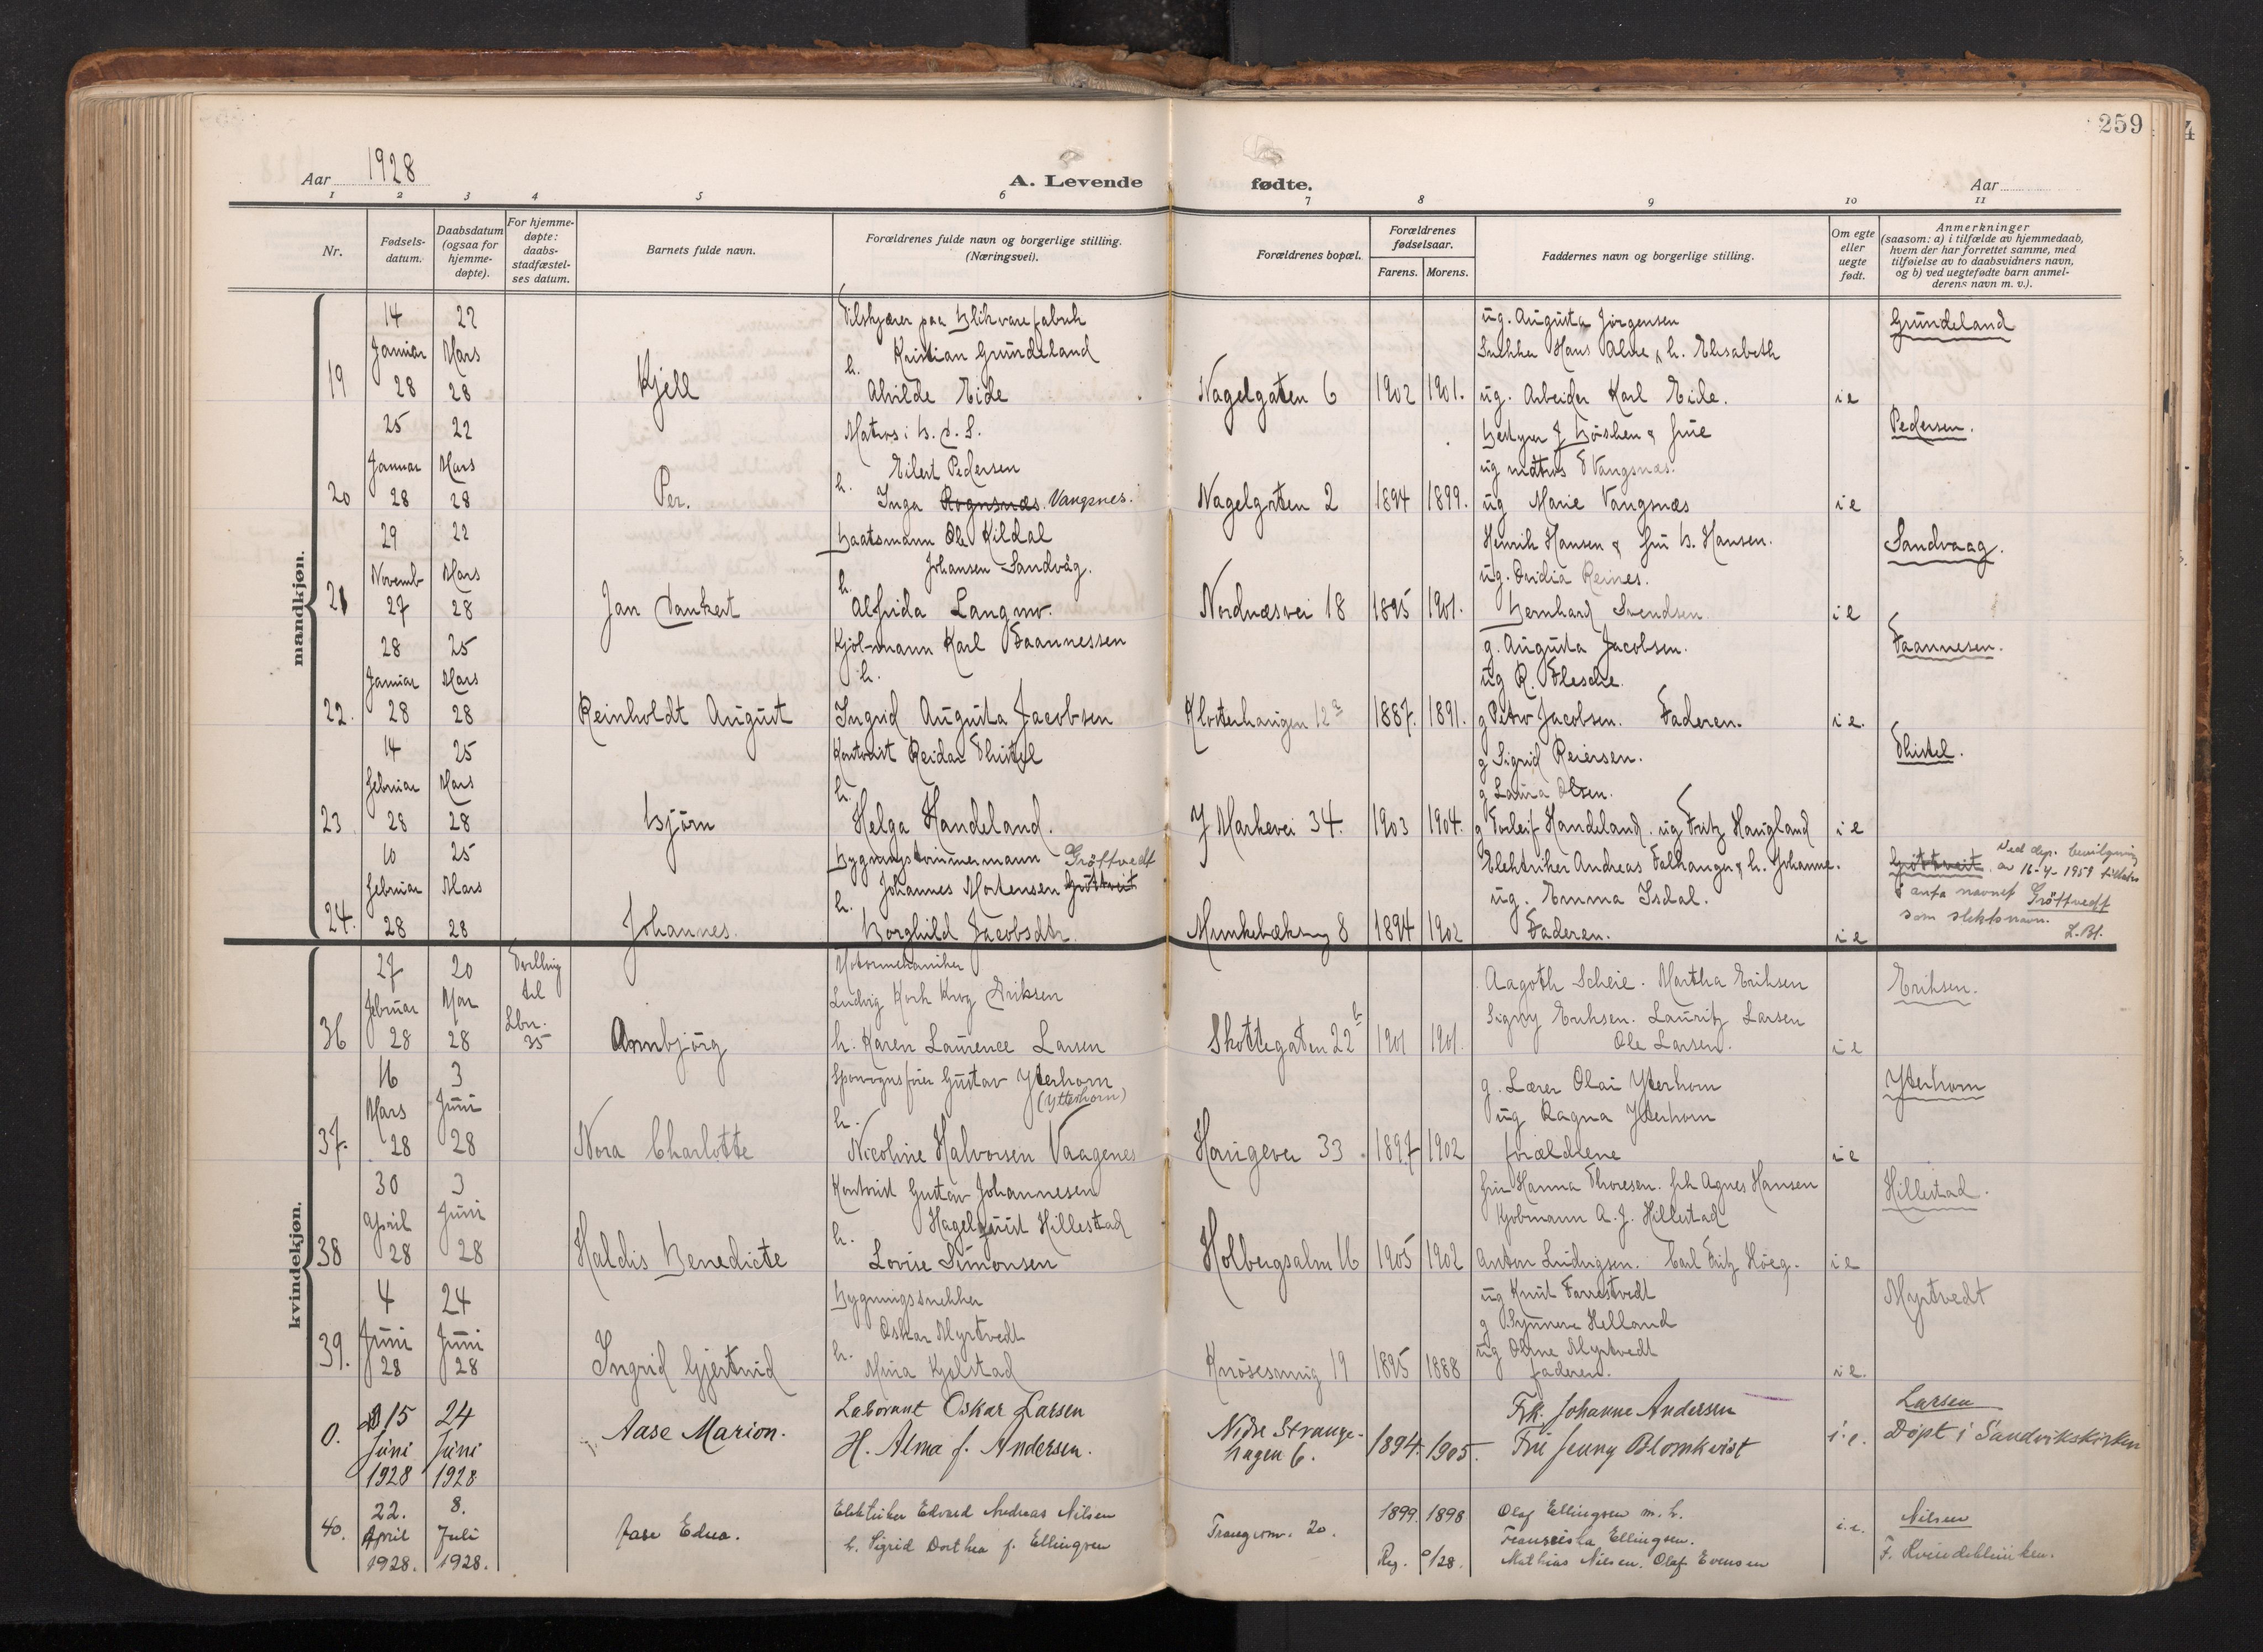 259
Aar 1928
A. Levende fødte.
Aar
1 2 3 4 5 6 7 8 9 10 11
Nr.
Fødsels-
datum.
Daabsdatum
(ogsaa for
hjemme-
døpte).
For hjemme-
døpte:
daabs-
stadfæstel-
ses datum.
Barnets fulde navn.
Forældrenes fulde navn og borgerlige stilling.
(Næringsvei).
Forældrenes bopæl.
Forældrenes
fødselsaar.
Farens. Morens.
Faddernes navn og borgerlige stilling.
Om egte
eller
uegte
født.
Anmerkninger
(saasom: a) i tilfælde av hjemmedaab,
hvem der har forrettet samme, med
tilføielse av to daabsvidners navn,
og b) ved uegtefødte barn anmel-
derens navn m. v.).
mandkjøn.
19
14
Januar
28
22
Mars
28
Kjell
Tilskjærer paa Blikvarefabrik
Kristian Grundeland
h.
Alvilde Eide
Nagelgaten 6
1902 1901.
ug. Augusta Jørgensen
Snekker Hans Alme & h. Elisabeth
ug. Arbeider Karl Eide.
i e
Grundeland
20
25
Januar
28
22
Mars
28
Per.
Matros i B. D. S.
Eilert Pedersen
h.
Inga Rognsnæs. Vangsnes.
Nagelgaten 2
1894 1899.
Bestyrer J. & frue
ug matros T Vangsnæs.
ug Marie Vangsnæs
i e
Pedersen.
21
29
Novemb
27
22
Mars
28
Jan Dankert
Baatsmann Ole Kildal
Johansen Sandvåg.
h.
Alfrida Langmo.
Nordnæsvei 18
1895 1901.
Henrik Hansen & fru B. Hansen.
ug. Ovidia Reines.
Bernhard Svendsen
i e
Sandvaag.
22.
28
Januar
28
25
Mars
28
Reinholdt August
Kjøbmann Karl Faannessen
h.
Ingrid Augusta Jacobsen
Klosterhaugen 12 a
1887. 1891.
g. Augusta Jacobsen.
ug R. Flesche.
g Petro Jacobsen. Faderen.
i e.
Faannesen.
23
14
Februar
28
25
Mars
28
Bjørn
Kontorist Reidar Thistel
h.
Helga Handeland.
J Markevei 34.
1903 1904.
g Sigrid Reiersen.
g Laura Olsen.
g Torleif Handeland. ug Fritz Haugland
i e
Thistel.
24.
10
Februar
28
25
Mars
28
Johannes.
Bygningstømmermann Grøttvedt
Johannes Mortensen Grøttveit
h.
Borghild Jacobsdtr.
Munkebæksmug 8
1894 1902
Elektriker Andreas Falkanger & h. Johanne.
ug. Emma Isdal.
Faderen.
i e
Grøttveit. Ved dep. bevilgning
av 16-4-1959 tillates
å anta navnet Grøttvedt
som slektsnavn.
L.Bl.
kvindekjøn.
36
27
Februar
28
20
Mar
28
Tvilling
til
Lbn.
35
Annbjørg
Motormekaniker
Ludvig Koch Krog Eriksen
h. Karen Laurence Larsen
Skottegaten 22 b
1901 1901.
Aagoth Scheie. Martha Eriksen
Signy Eriksen. Lauritz Larsen
Ole Larsen.
i e
Eriksen.
37.
16
Mars
28
3
Juni
28
Nora Charlotte
Sporvognsfører Gustav Yterhorn
(Ytterhorn)
h.
Nicoline Halvorsen Vaagenes
Haugevei 33.
1897 1902
g. Lærer Olai Yterhorn
ug Ragna Yterhorn
forældrene
i e
Yterhorn
38
30
April
28
3
Juni
28
Haldis Benedicte
Kontorist Gustav Johannesen
Hagelquist Hillestad
h.
Lovise Simonsen
Holbergsalm 16
1905 1902
fru Hanna Thoresen. frk Agnes Hansen
Kjøbmann A. J. Hillestad
Anton Ludvigsen. Carl Fritz Høeg.
i e
Hillestad.
39.
4
Juni
28
24
Juni
28
Ingrid Gjertrud
Bygningssnekker
Oskar Myrtvedt
h.
Mina Kjelstad
Knøsesmug 19
1895 1888
ug Knut Farrestvedt
g Synneve Helland
ug Oline Myrtvedt
faderen.
i e.
Myrtvedt
0.
15
Juni
1928
24
Juni
1928
Aase Marion.
Laborant Oskar Larsen
H. Alma f. Andersen.
Nidre Strange-
hagen 6.
1894. 1905.
Frk. Johanne Andersen
Fru Jenny Blomkvist
i. e.
Larsen
Døpt i Sandvikskirken
40.
22.
April
1928.
8.
Juli
1928.
Aase Edna.
Elektriker Edvard Andreas Nilsen
h. Sigrid Dorthea f. Ellingsen
Trangesm. 20.
1899. 1898
Reg. 9/28.
Olaf Ellingsen m. h.
Fransiska Ellingsen.
Mathias Nilsen. Olaf Evensen
i. e.
Nilsen
F. Kvindeklinikken.